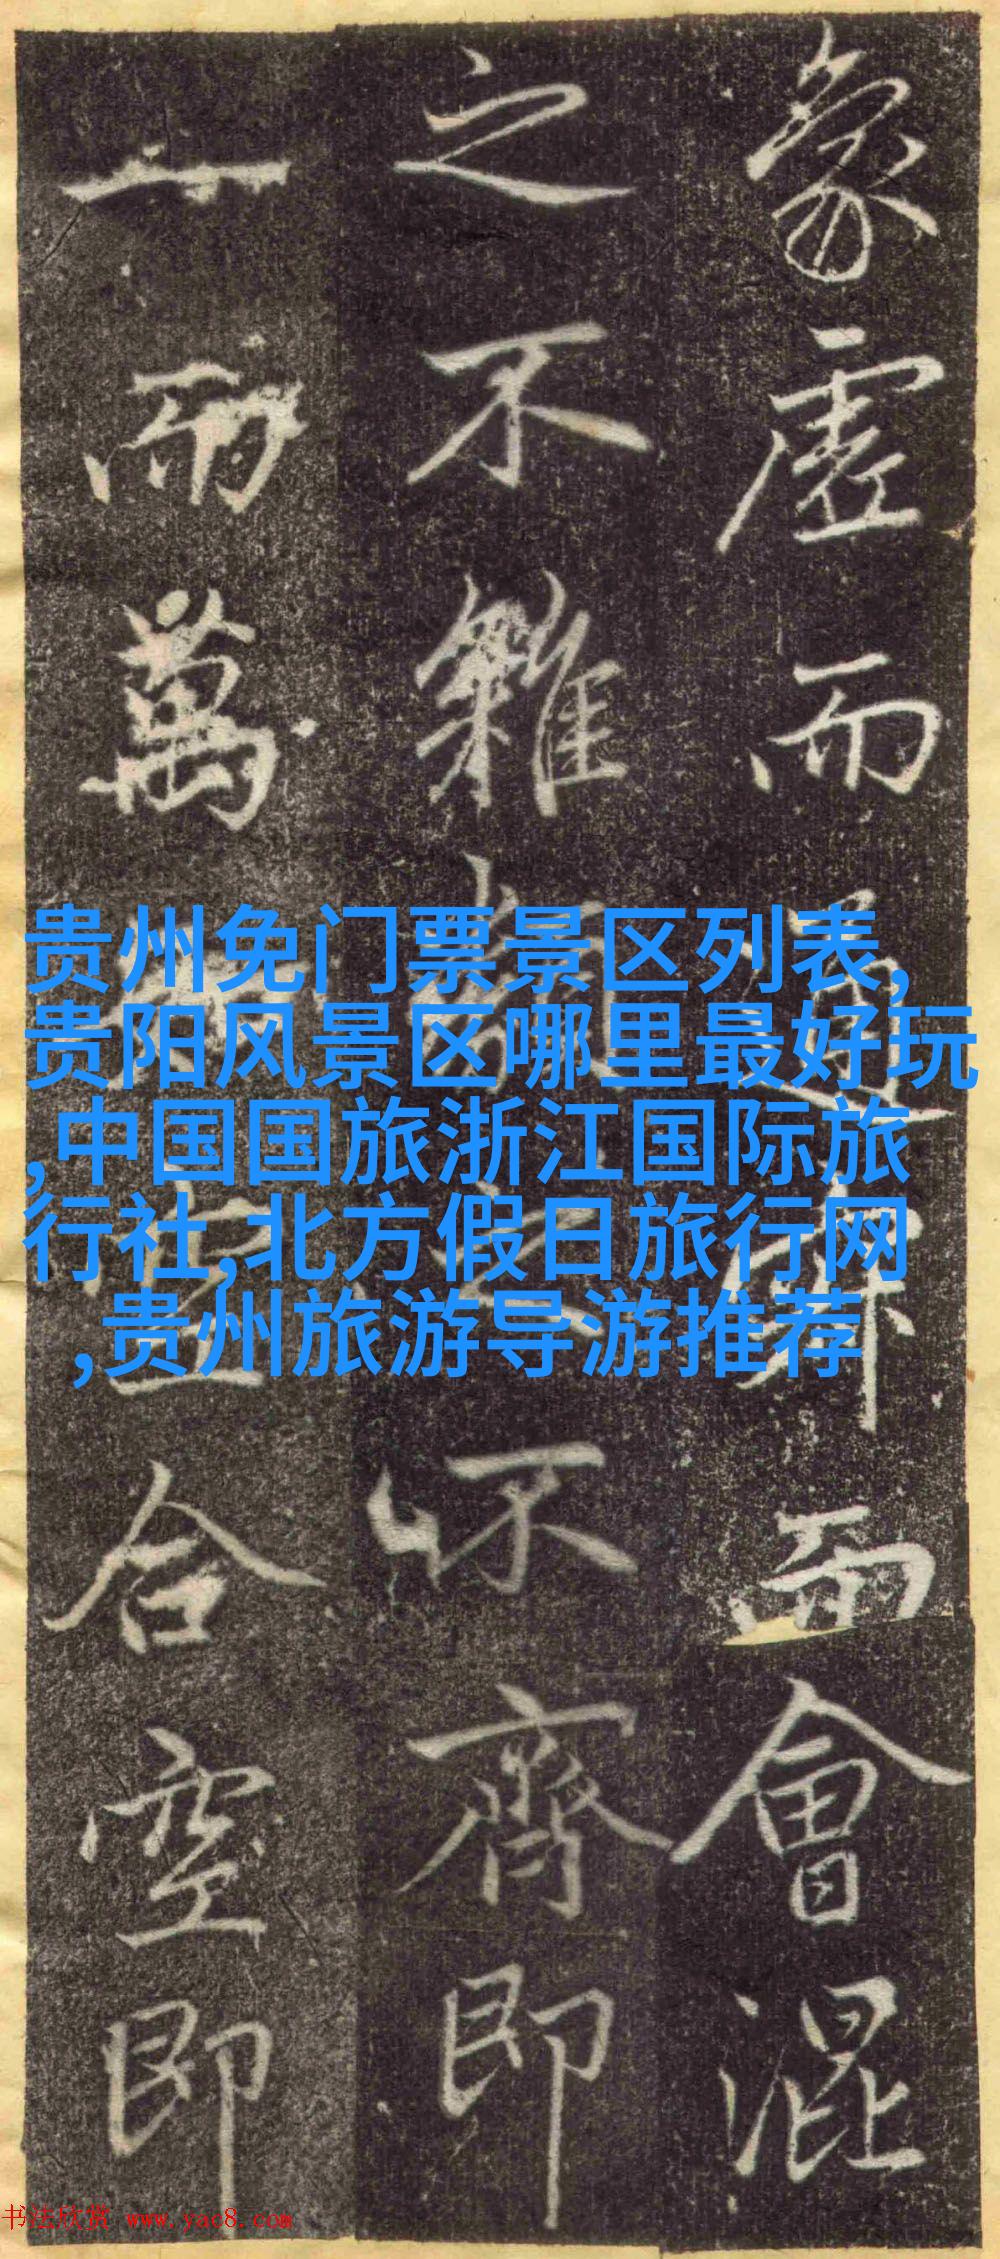 象虛而而會混
之不雜不齊即
一而萬合空即
贵州免门票景区列表,
贵阳风景区哪里最好玩
,中国国旅浙江国际旅
行社,北方假日旅行网
,贵州旅游导游推荐
书法欣赏 www.yac8.com